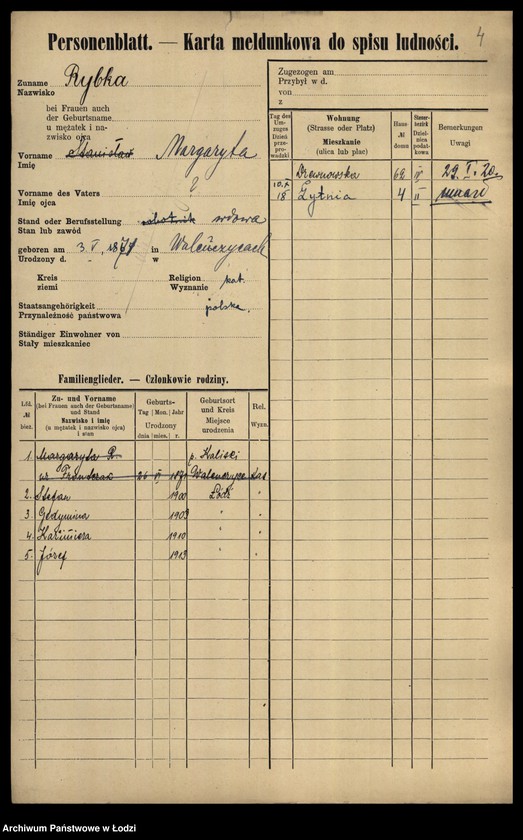 4
Personenblatt. — Karta meldunkowa do spisu ludności.
Zuname
Nazwisko
Rybka
bei Frauen auch
der Geburtsname
u mężatek i na-
zwisko ojca
Vorname
Imię
Stanisław Margaryta
Vorname des Vaters
Imię ojca
Stand oder Berufsstellung
Stan lub zawód
robotnik wdowa
geboren am 3. V. 1871 in
Urodzony d. w
Kreis
ziemi
Religion
Wyznanie
kat.
Staatsangehörigkeit
Przynależność państwowa
polska.
Ständiger Einwohner von
Stały mieszkaniec
Zugezogen am
Przybył w d.
von
z
Tag des Um-zuges Dzień prze-pro-wadzki
Wohnung (Strasse oder Platz) Mieszkanie (ulica lub plac)
Haus № domu
Steuer-bezirk Dziel-nica podat-kowa
Bemerkungen Uwagi
Drewnowska 62 IV 29. I. 20.
10.X 18 Żytnia 4 II
Familienglieder. — Członkowie rodziny.
Lfd. № bież.
Zu- und Vorname (bei Frauen auch der Geburtsname) und Stand Nazwisko i imię (u mężatek i nazwisko ojca) i stan
Geburts- Tag Mon. Jahr Urodzony dnia mies. r.
Geburtsort und Kreis Miejsce urodzenia
Rel. Wyzn.
1. Margaryta R. p. Kaliski
26 VI kat
2. Stefan 1900 Łódź "
3. Gedymina 1903 " "
4. Kazimiera 1910 " "
5. Józef 1913 " "
Archiwum Państwowe w Łodzi